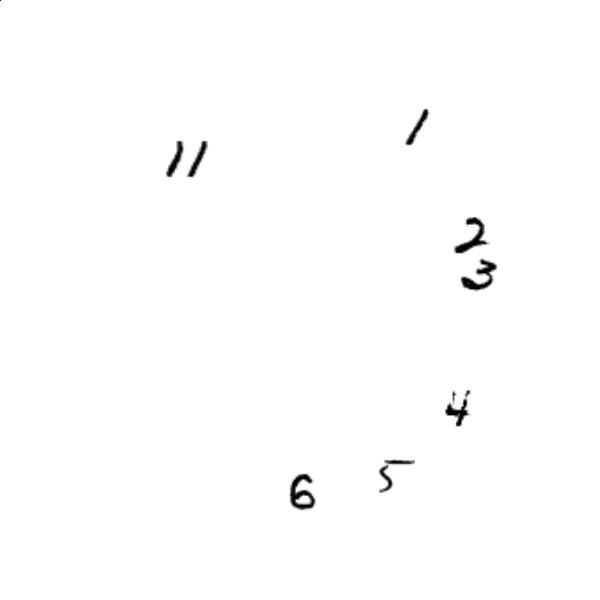 1
11
2
3
4
5
6